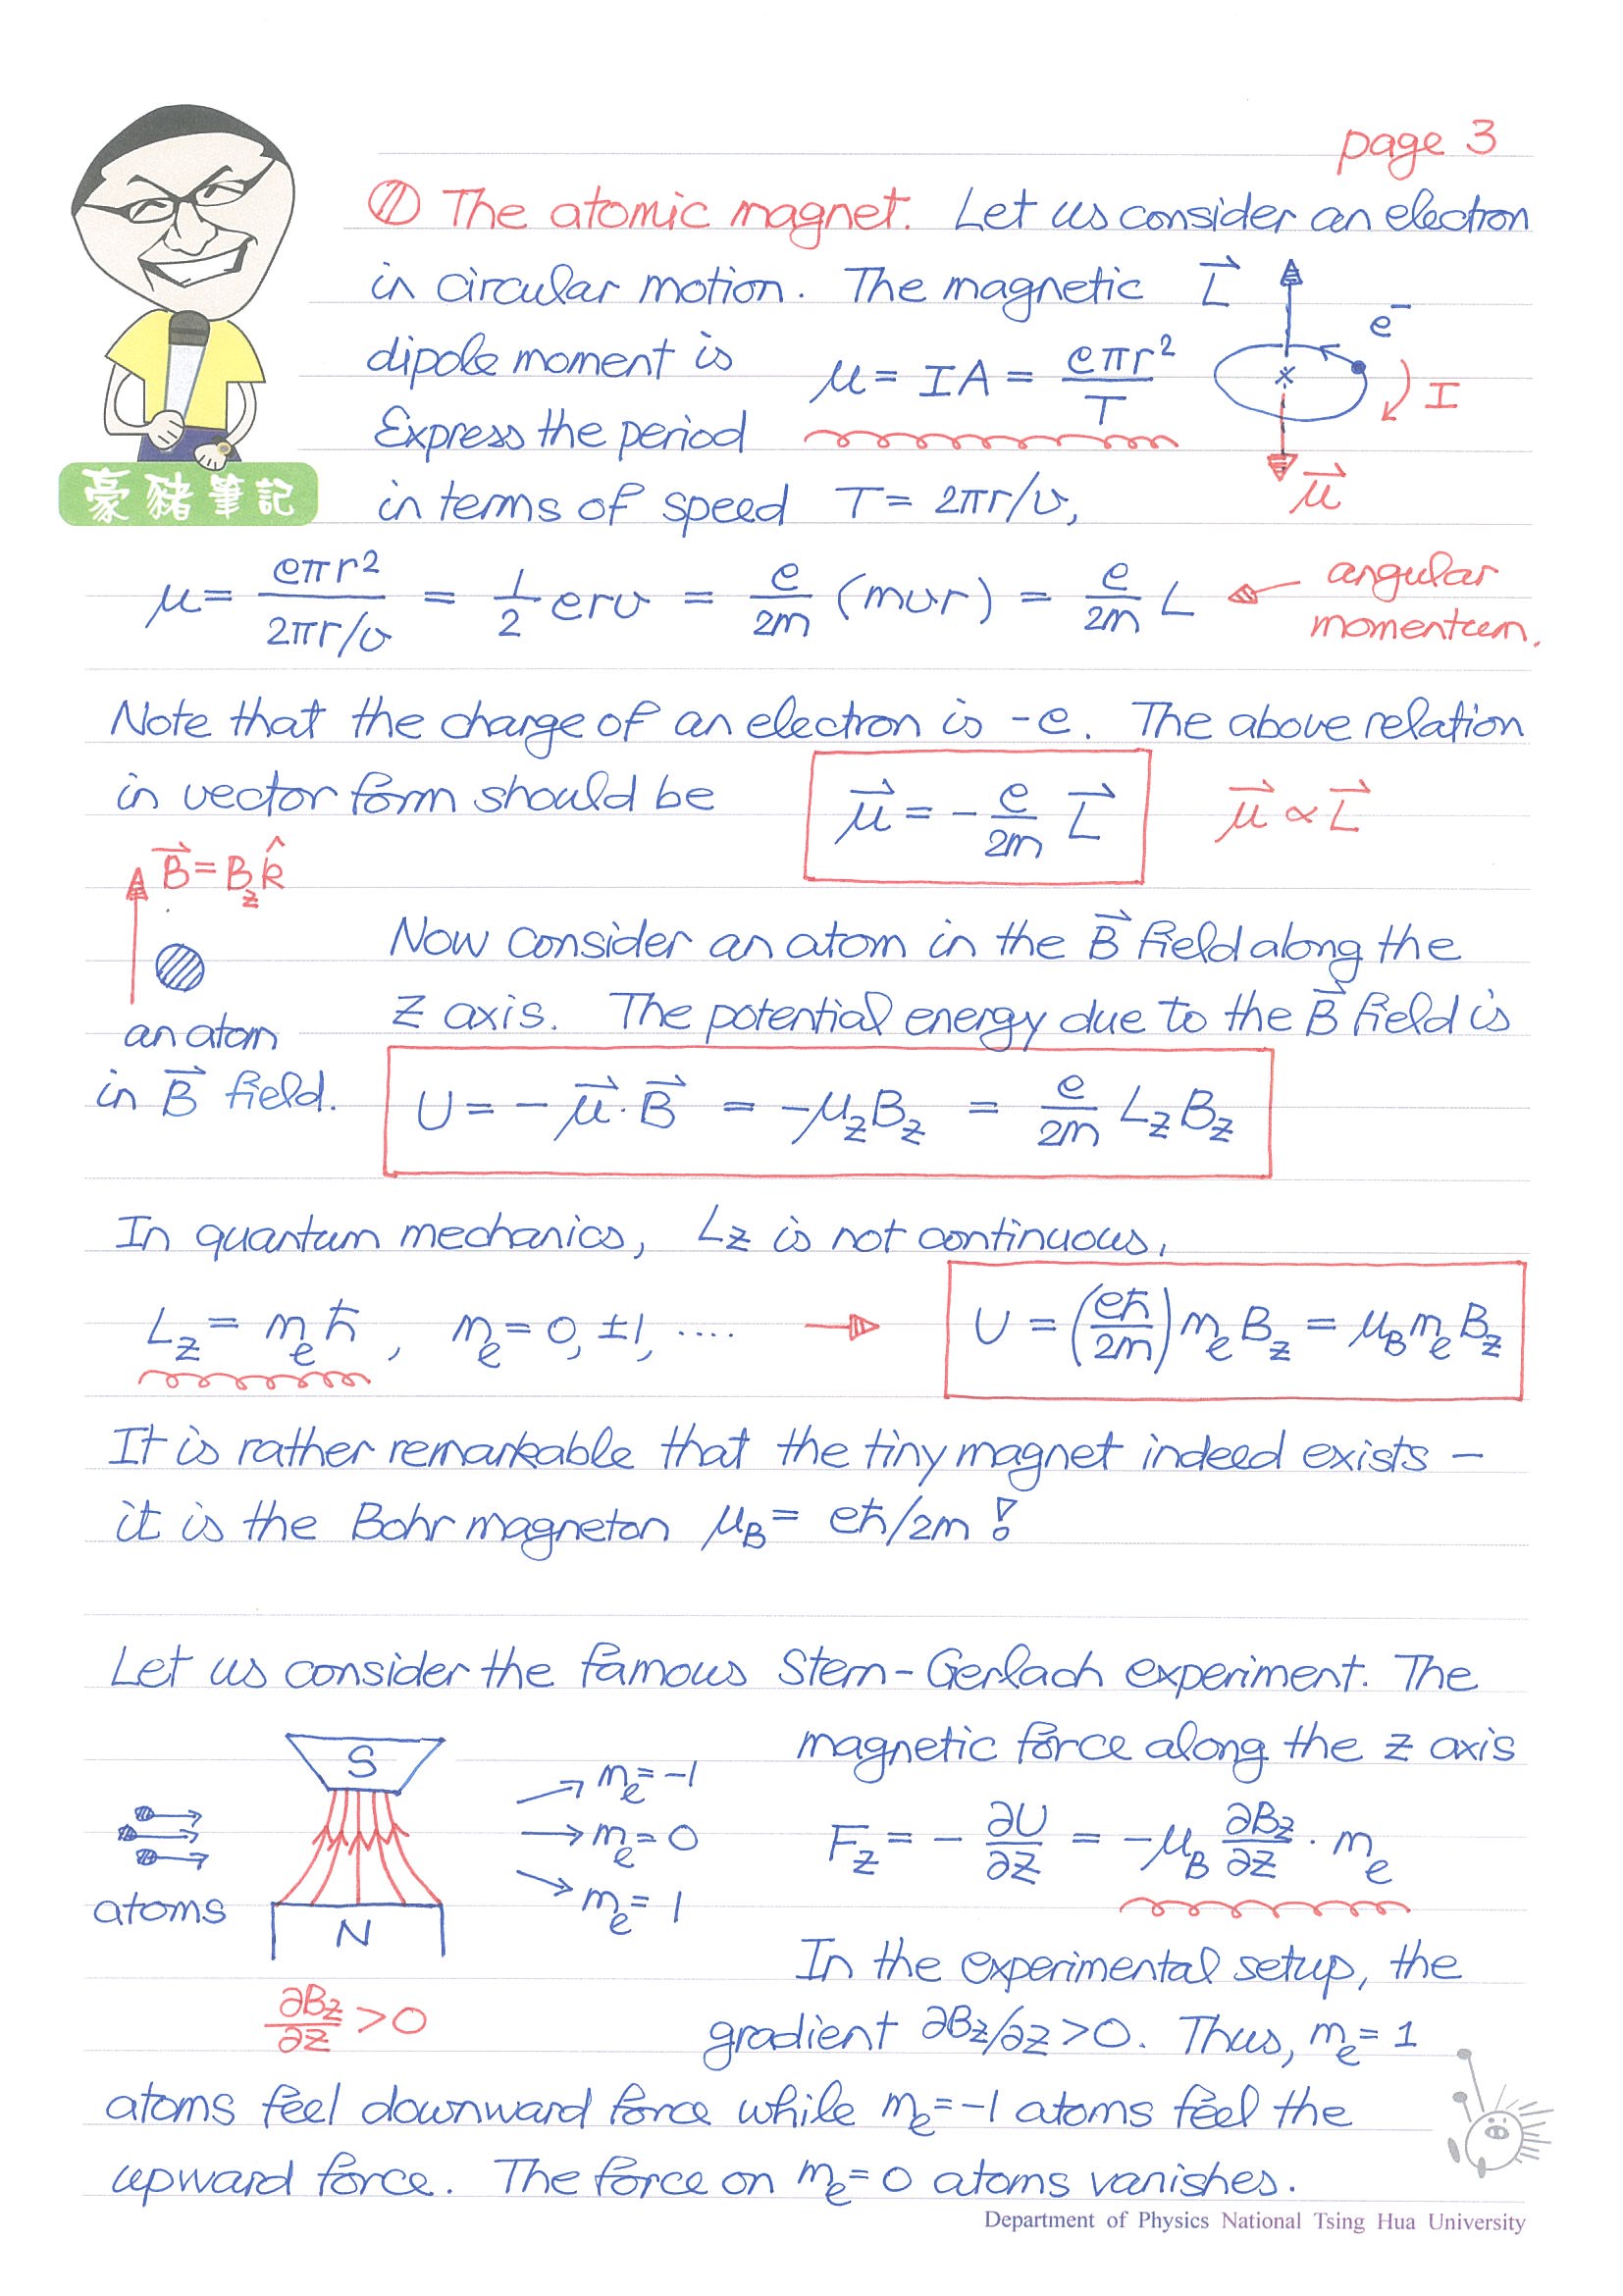 page 3
The atomic magnet. Let us consider an electron
in circular motion. The magnetic
dipole moment is μ = IA = eπr²/T
Express the period
in terms of speed T = 2πr/v,
L⃗
e⁻
I
μ⃗
豪豬筆記
μ = eπr²/(2πr/v) = 1/2 erv = e/2m (mvr) = e/2m L ← angular
momentum.
Note that the charge of an electron is -e. The above relation
in vector form should be μ⃗ = - e/2m L⃗ μ⃗ ∝ L⃗
B⃗ = B_z k̂
an atom
in B⃗ field.
Now consider an atom in the B⃗ field along the
z axis. The potential energy due to the B⃗ field is
U = - μ⃗·B⃗ = -μ_z B_z = e/2m L_z B_z
In quantum mechanics, L_z is not continuous,
L_z = m_ℓ ħ, m_ℓ = 0, ±1, .... → U = (eħ/2m) m_ℓ B_z = μ_B m_ℓ B_z
It is rather remarkable that the tiny magnet indeed exists –
it is the Bohr magneton μ_B = eħ/2m !
Let us consider the famous Stern-Gerlach experiment. The
magnetic force along the z axis
F_z = - ∂U/∂z = -μ_B ∂B_z/∂z · m_ℓ
S
N
atoms
m_ℓ = -1
m_ℓ = 0
m_ℓ = 1
∂B_z/∂z > 0
In the experimental setup, the
gradient ∂B_z/∂z > 0. Thus, m_ℓ = 1
atoms feel downward force while m_ℓ = -1 atoms feel the
upward force. The force on m_ℓ = 0 atoms vanishes.
Department of Physics National Tsing Hua University